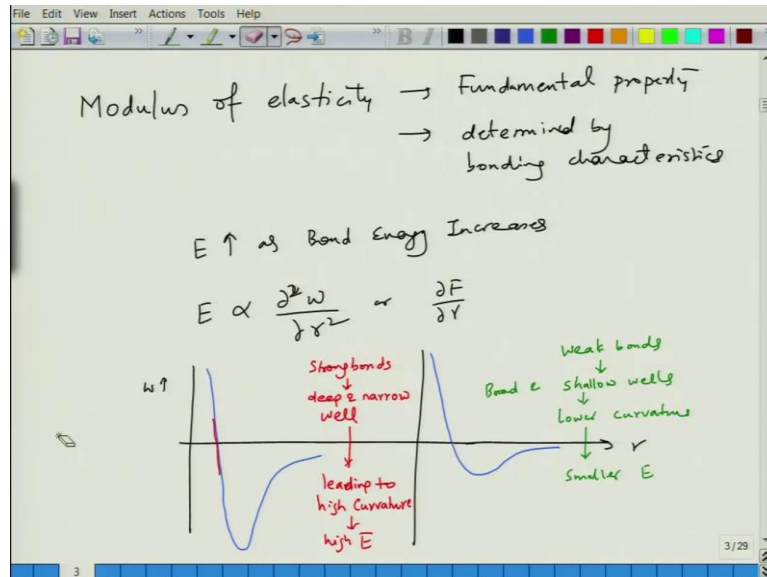 File Edit View Insert Actions Tools Help
Modulus of elasticity → Fundamental property
→ determined by
bonding characteristics
E ↑ as Bond Energy Increases
E ∝ ∂²w/∂r² or ∂F/∂r
w↑
Strong bonds
↓
deep & narrow
well
↓
leading to
high curvature
↓
high E
weak bonds
↓
Broad & shallow wells
↓
Lower curvature
↓
Smaller E
r
3/29
3